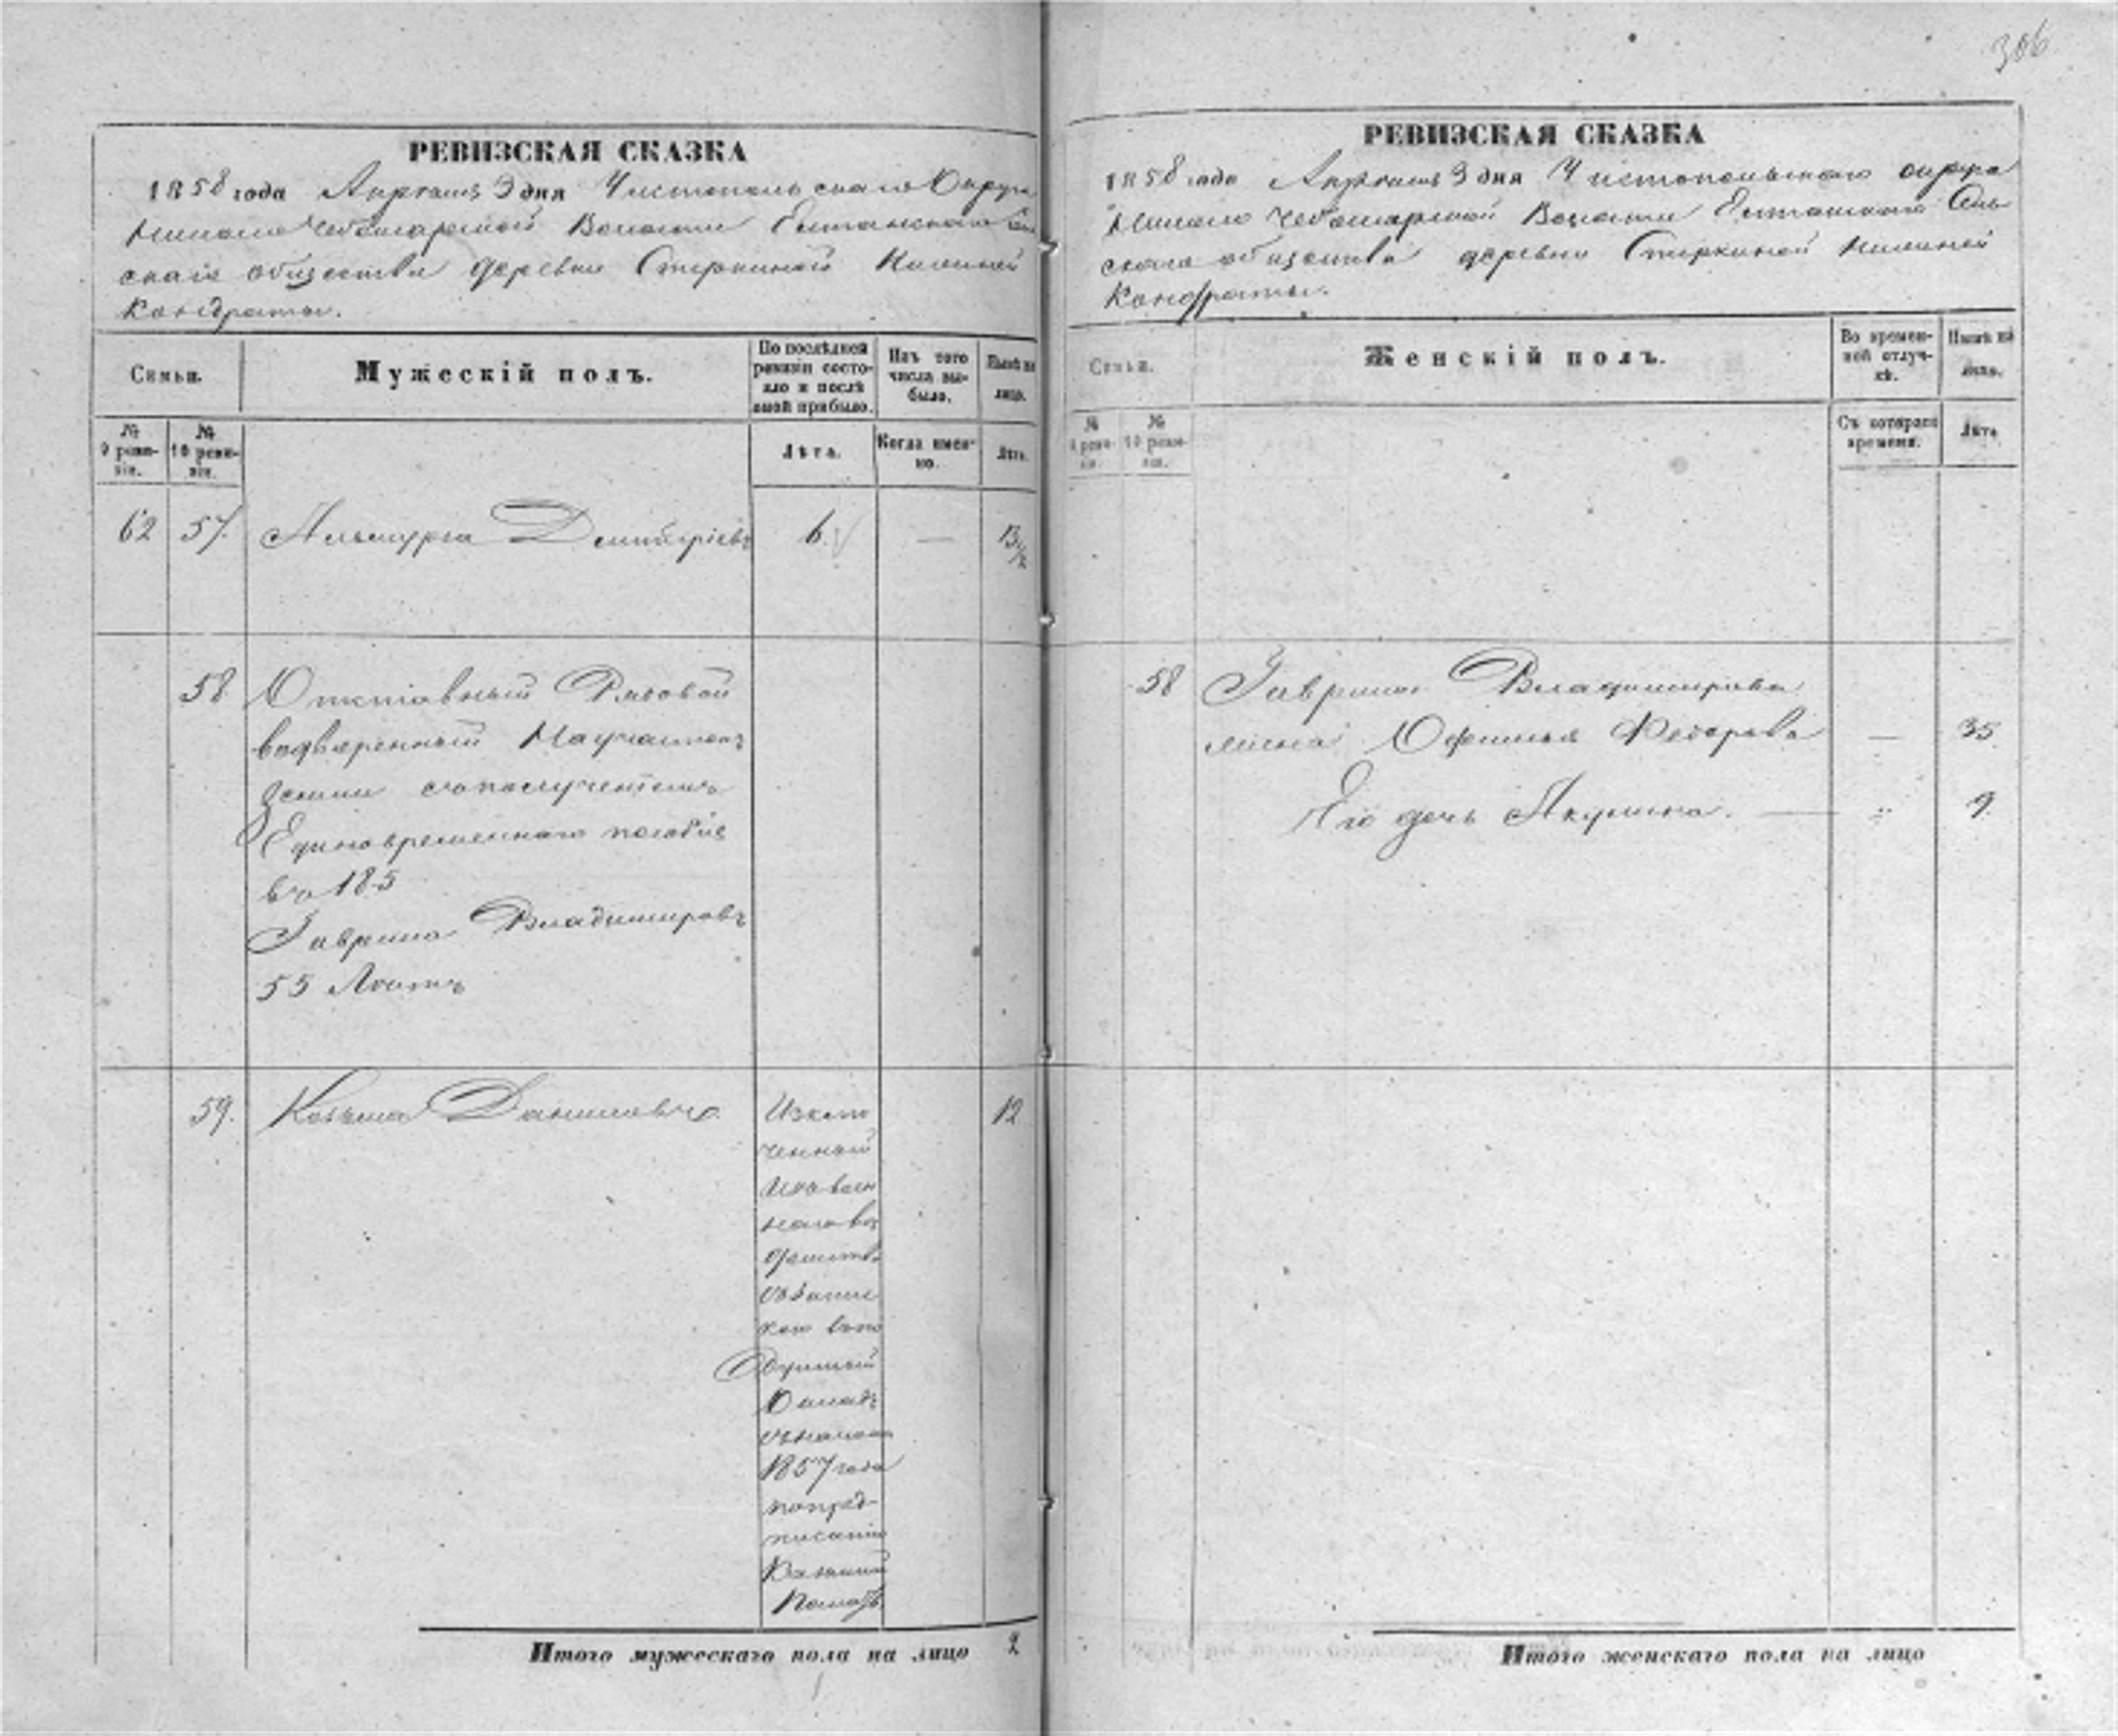 306
РЕВИЗСКАЯ СКАЗКА
1858 года Апреля 3 дня Чистопольскаго Округа
Чебоксарской Волости Елтанскаго Сель
скаго общества деревни Стюркиной Киленей
Кондраты.
Семьи.
Мужескій полъ.
По послѣдней ревизіи состояло и послѣ оной прибыло.
Изъ того числа выбыло.
Нынѣ на лицо.
№ 9 ревизіи.
№ 10 ревизіи.
Лѣта.
Когда именно.
Лѣта.
62 57. Димитріевъ 6. — 13 1/2
58 Отставный Рядовой
водворенный На участокъ
земли съ полученіемъ
Единовременнаго пособія
въ 185
Гаврила Владимировъ
55 Лѣтъ
59. Козьма Даниловъ 12
Исклю
ченный
изъ воен
наго вѣ
домства
1857 года
по пред-
писанію
Казенной
Палаты
Итого мужескаго пола на лицо 2
РЕВИЗСКАЯ СКАЗКА
1858 года Апреля 3 дня Чистопольскаго округа
Чебоксарской Волости Елтанскаго Сель
скаго общества деревни Стюркиной Киленей
Кондраты.
Семьи.
Женскій полъ.
Во временной отлучкѣ.
Нынѣ на лицо.
№ 9 ревизіи.
№ 10 ревизіи.
Съ котораго времени.
Лѣта
58 Гаврила Владимирова
жена Офимья Федорова — 35
Его дочь Акулина. — " 9.
Итого женскаго пола на лицо